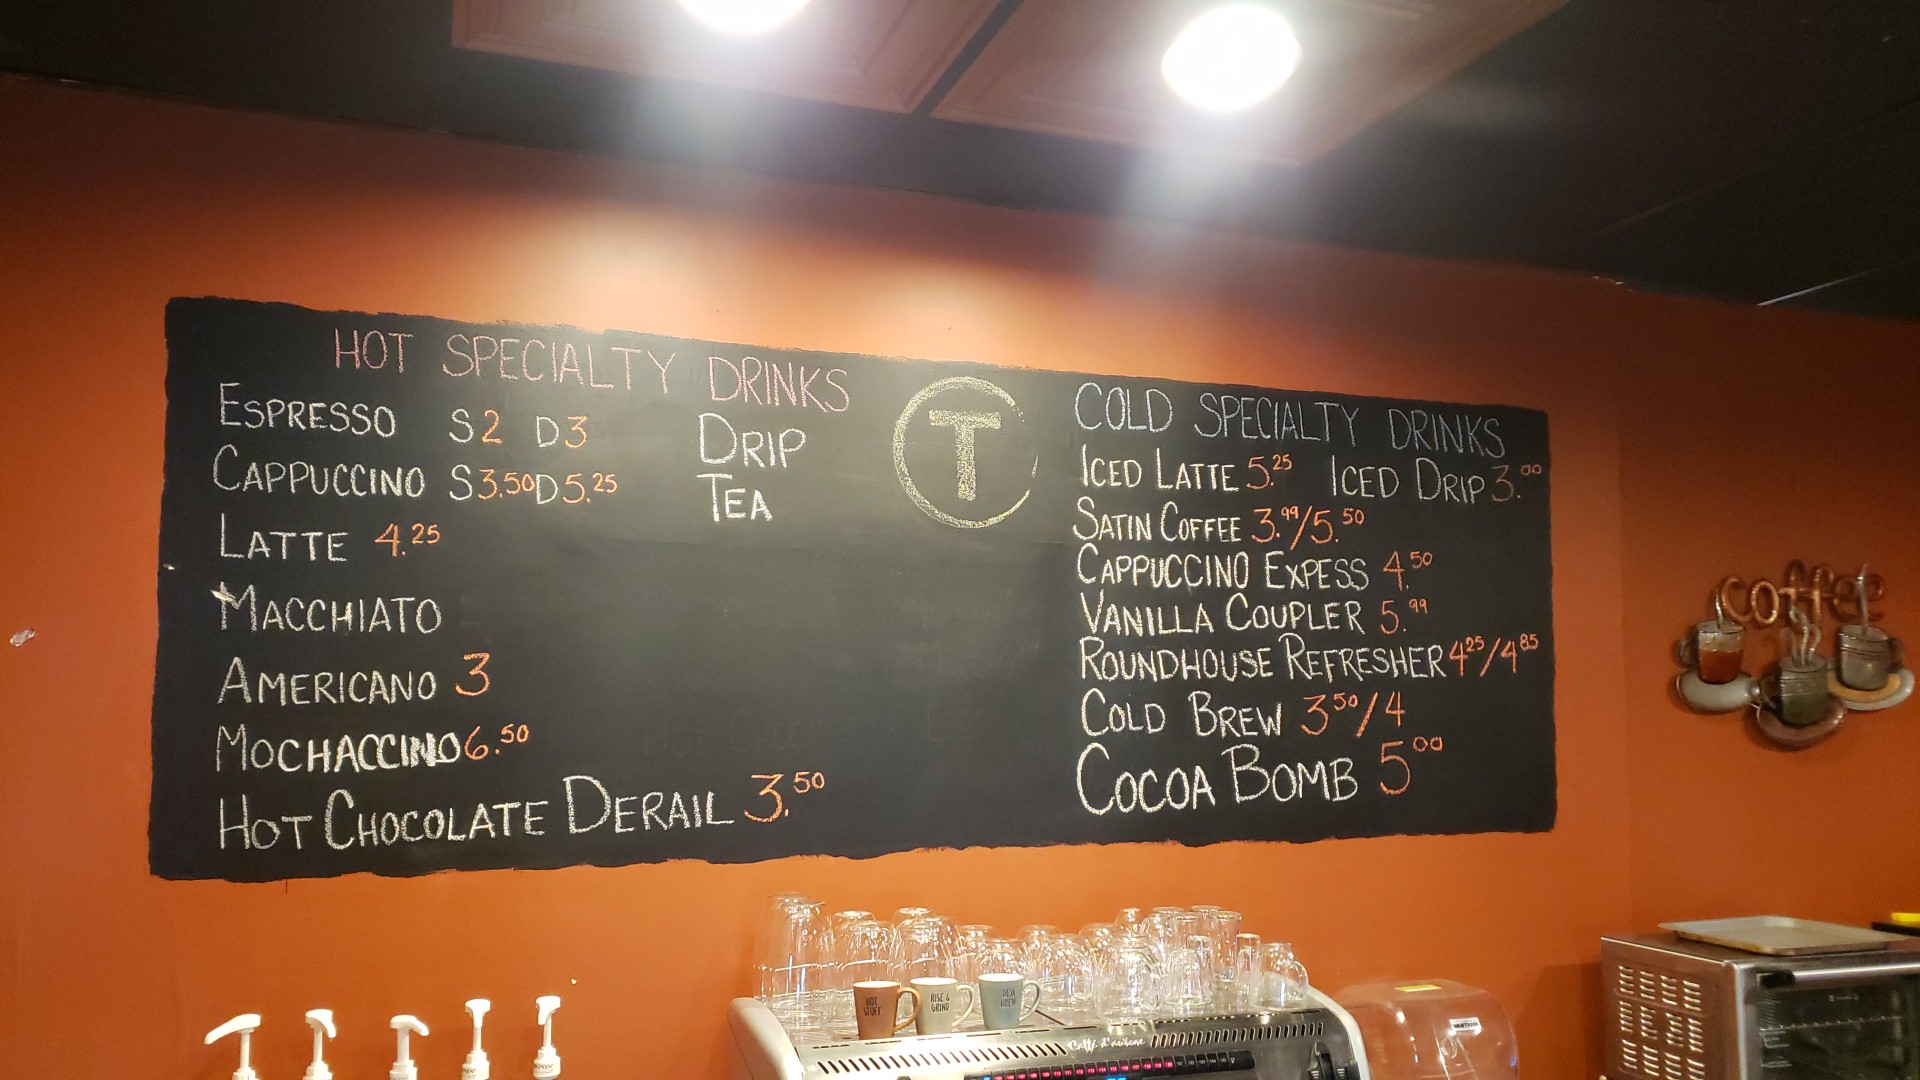 HOT SPECIALTY DRINKS
ESPRESSO S 2 D 3
CAPPUCCINO S 3.50 D 5.25
LATTE 4.25
MACCHIATO
AMERICANO 3
MOCHACCINO 6.50
HOT CHOCOLATE DERAIL 3.50
DRIP
TEA
T
COLD SPECIALTY DRINKS
ICED LATTE 5.25 ICED DRIP 3.00
SATIN COFFEE 3.99/5.50
CAPPUCCINO EXPESS 4.50
VANILLA COUPLER 5.99
ROUNDHOUSE REFRESHER 4 25/4 85
COLD BREW 3 50/4
COCOA BOMB 5 00
coffee
HOT
STUFF
RISE &
GRIND
BREW